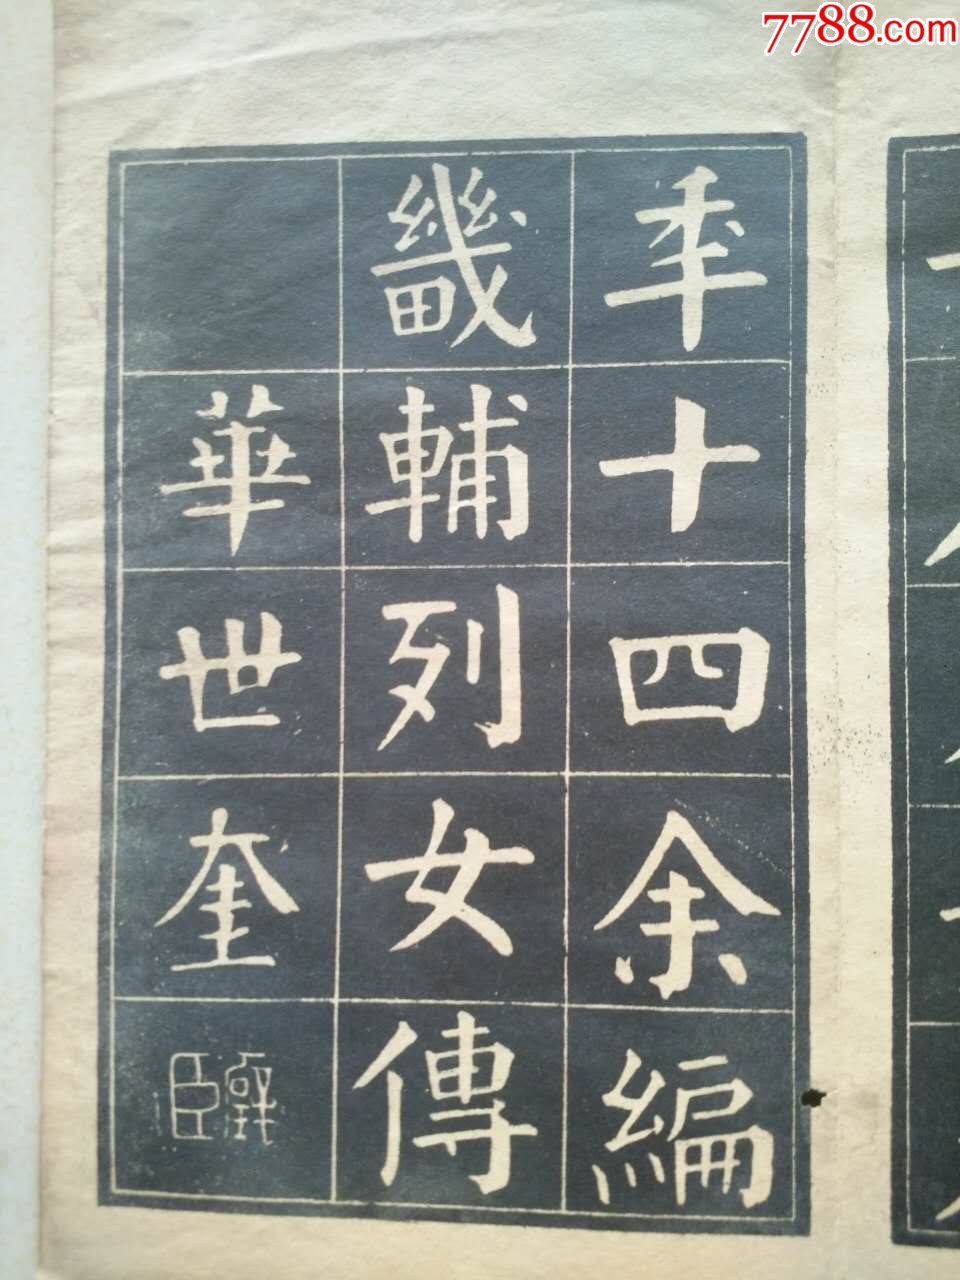 7788.com
年十四余編
畿輔列女傳
華世奎